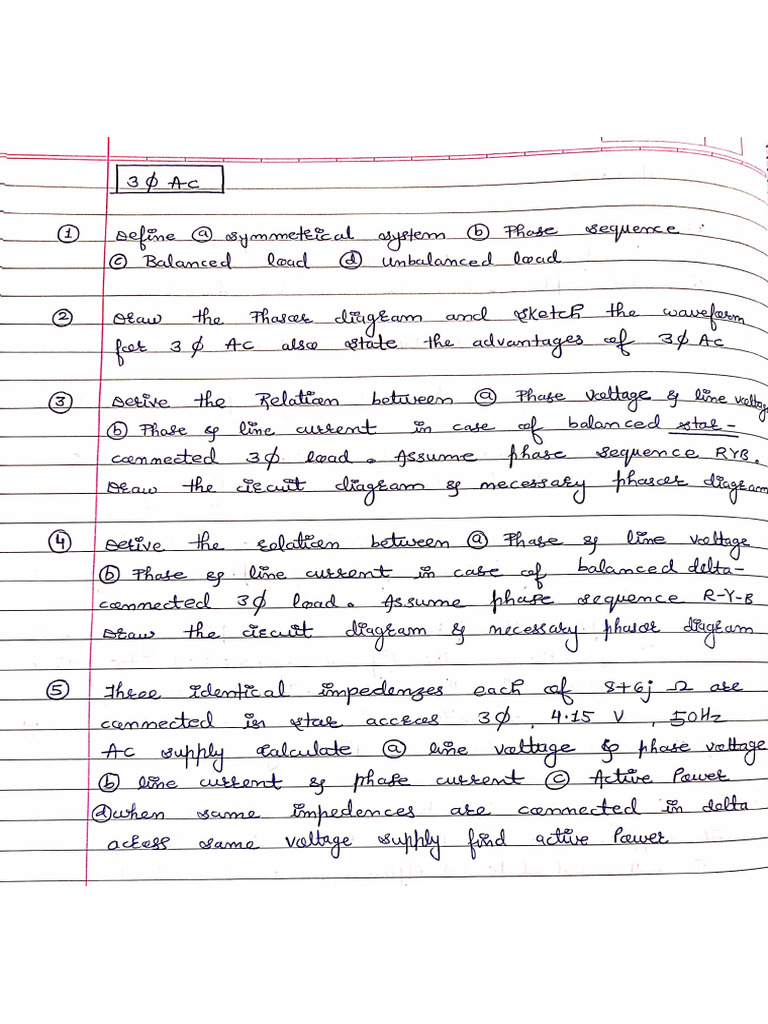 3 ϕ AC
① Define ⓐ symmetrical system ⓑ Phase sequence
ⓒ Balanced load ⓓ unbalanced load
② Draw the Phasor diagram and sketch the waveform
for 3 ϕ AC also state the advantages of 3ϕ AC
③ Derive the Relation between ⓐ Phase voltage & line voltage
ⓑ Phase & line current in case of balanced star-
connected 3ϕ load. Assume phase sequence RYB.
Draw the circuit diagram & necessary phasor diagram
④ Derive the relation between ⓐ Phase & line voltage
ⓑ Phase & line current in case of balanced delta-
connected 3ϕ load. Assume phase sequence R-Y-B
Draw the circuit diagram & necessary phasor diagram
⑤ Three identical impedenzes each of 8+6j Ω are
connected in star across 3ϕ, 4.15 V, 50Hz
AC supply calculate ⓐ line voltage & phase voltage
ⓑ line current & phase current ⓒ Active Power
ⓓ when same impedences are connected in delta
across same voltage supply find active Power